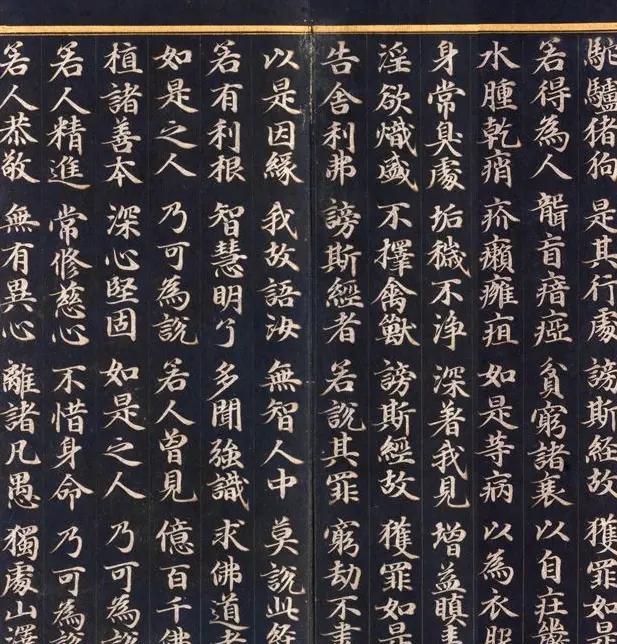 駝驢猪狗 是其行處 謗斯経故 獲罪如是
若得為人 聾盲瘖瘂 貧窮諸衰 以自莊
水腫乾痟 疥癩癰疽 如是等病 以為衣服
身常臭處 垢穢不淨 深著我見 增益瞋
淫欲熾盛 不擇禽獸 謗斯經故 獲罪如是
告舍利弗 謗斯經者 若說其罪 窮劫不盡
以是因緣 我故語汝 無智人中 莫說此經
若有利根 智慧明了 多聞強識 求佛道者
如是之人 乃可為說 若人曾見 億百千佛
植諸善本 深心堅固 如是之人 乃可為說
若人精進 常修慈心 不惜身命 乃可為說
若人恭敬 無有異心 離諸凡愚 獨處山澤